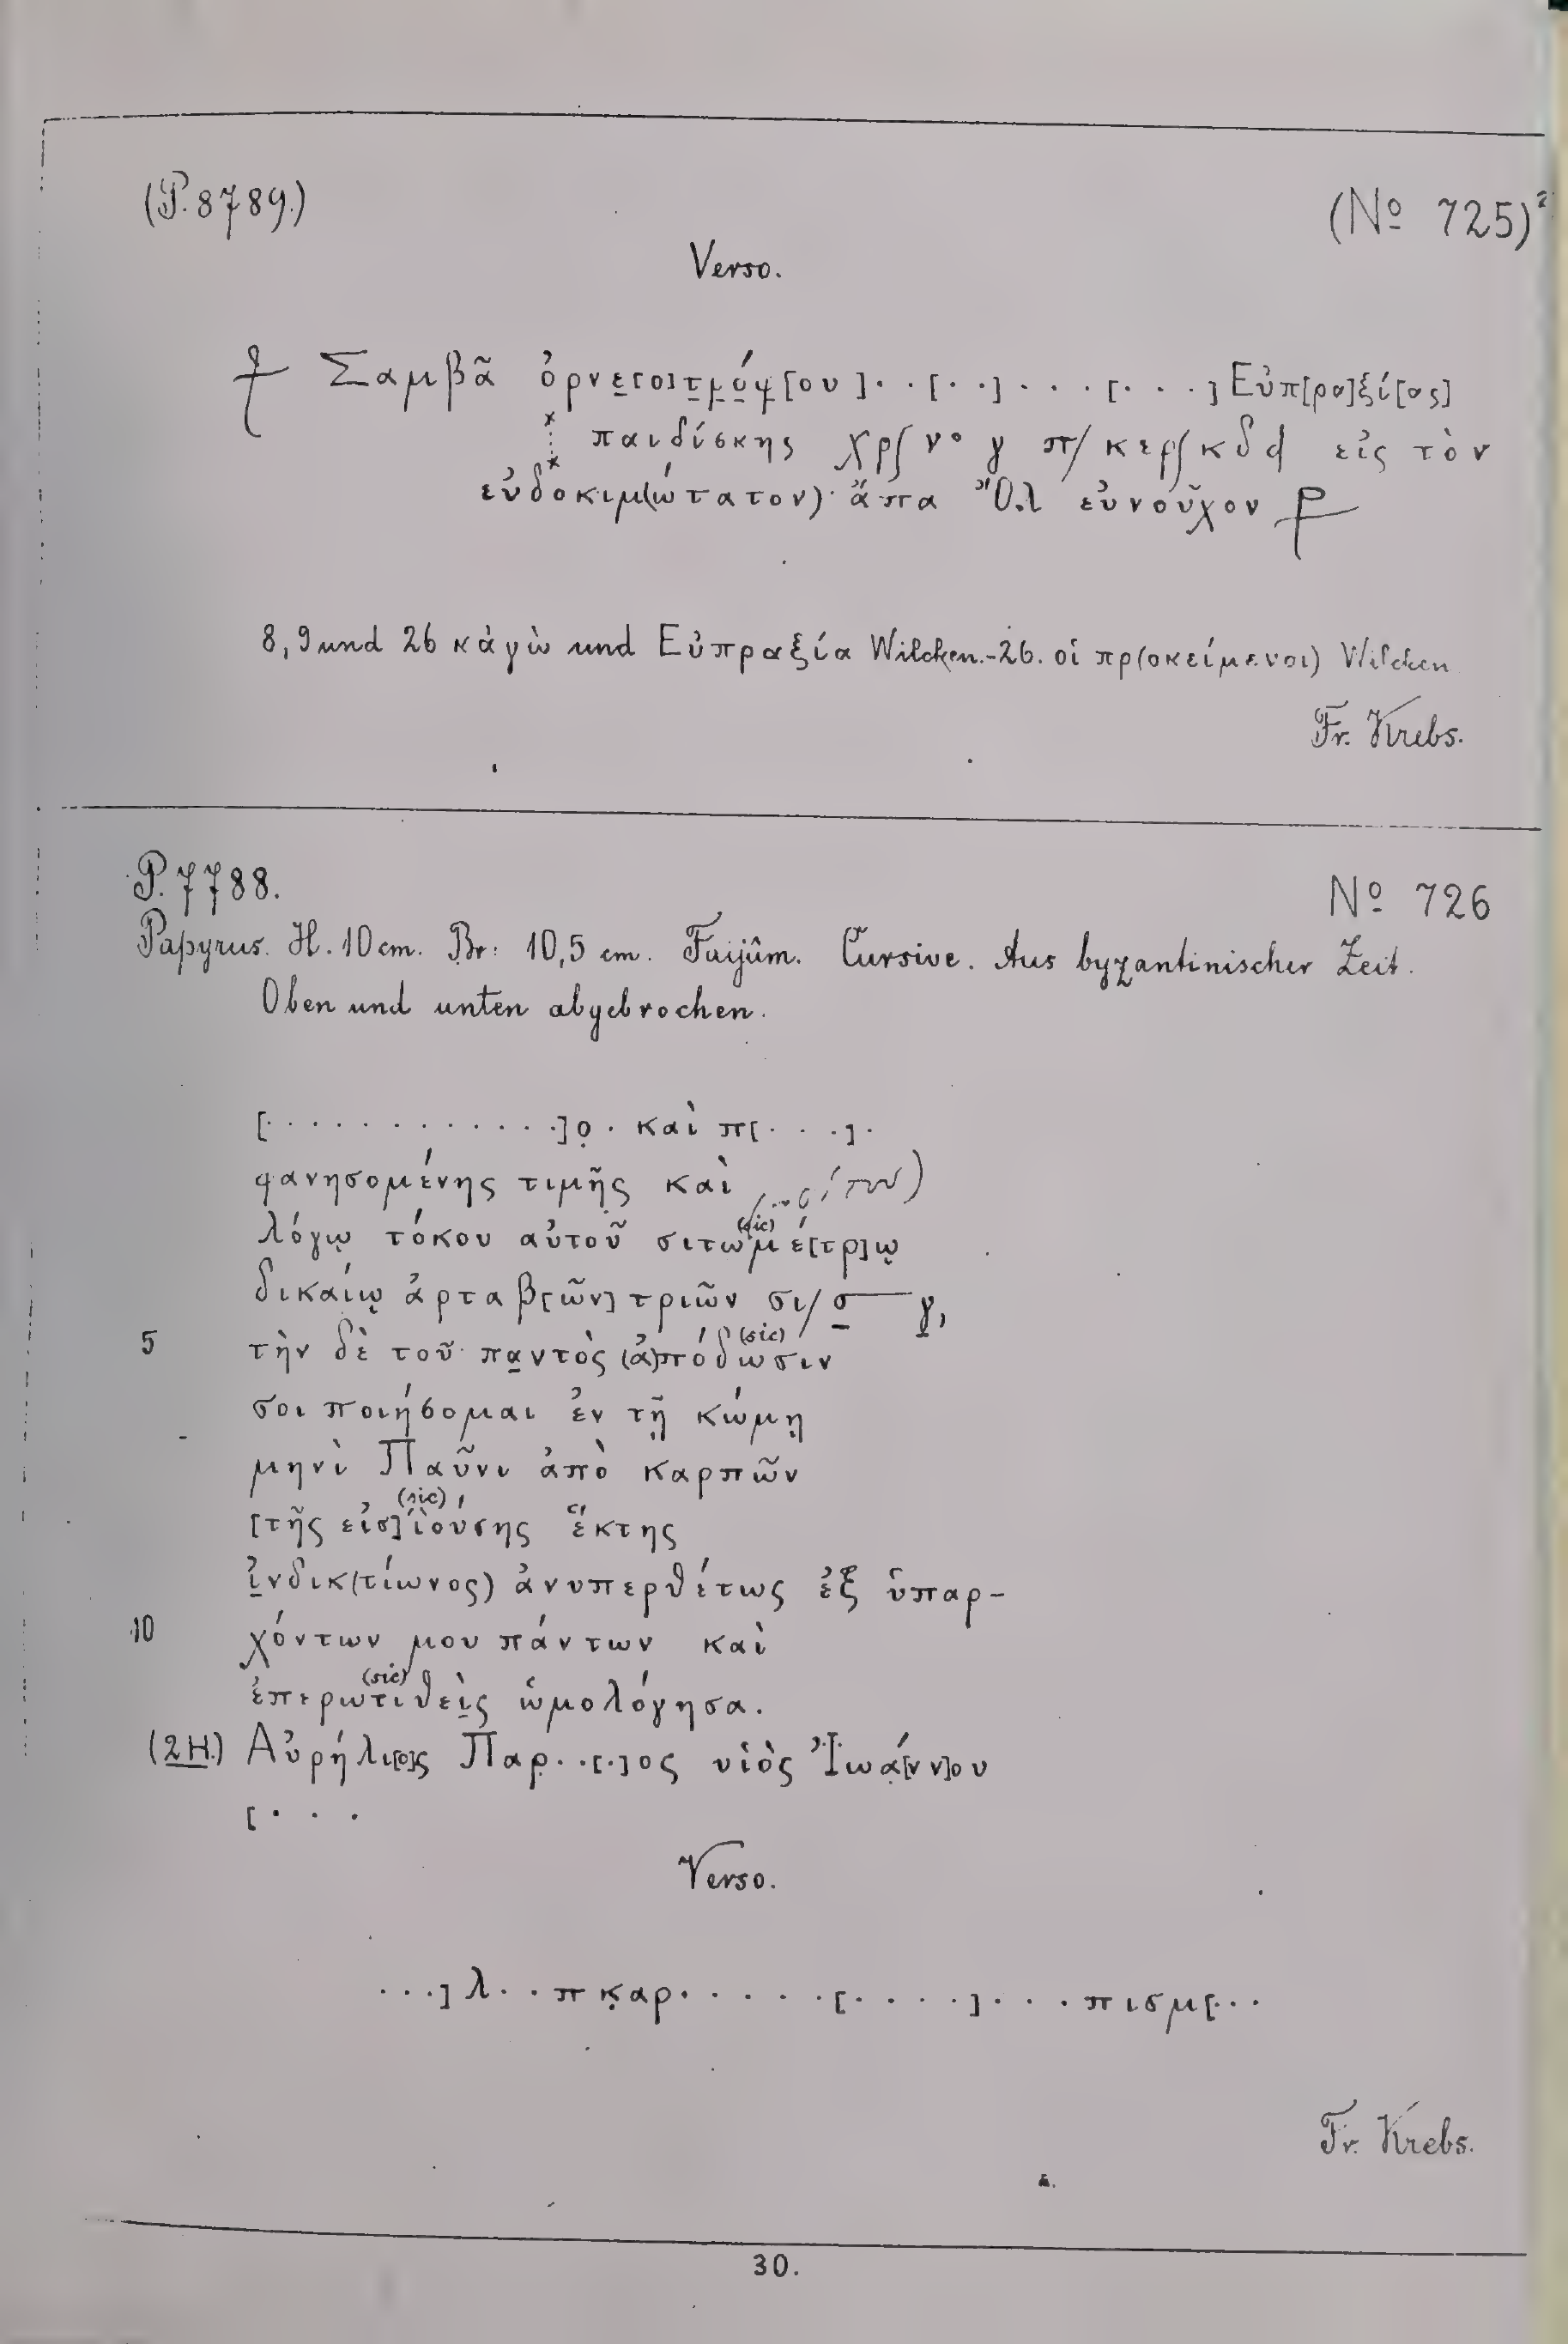 (P. 8789.)
(No 725)2
Verso.
⳨ Σαμβᾶ ὀρνε[ο]τρόφ[ου]..[..]...[...]Εὐπ[ρα]ξί[ας]
παιδίσκης χρ∫ νο γ π/ κερ∫ κδ d εἰς τὸν
εὐδοκιμ(ώτατον) ἄπα Ὄ.λ εὐνοῦχον ⳨
8, 9 und 26 κἀγὼ und Εὐπραξία Wilcken.-26. οἱ πρ(οκείμενοι) Wilcken
Fr. Krebs.
P. 7788.
No 726
Papyrus. H. 10 cm. Br: 10,5 cm. Faijûm. Cursive. Aus byzantinischer Zeit.
Oben und unten abgebrochen.
[.............]ọ. καὶ π[....].
φανησομένης τιμῆς καὶ
λόγῳ τόκου αὐτοῦ σιτωμέ[τρ]ῳ (sic)
δικαίῳ ἀρταβ[ῶν] τριῶν σι/ σ— γ,
5 τὴν δὲ τοῦ παντὸς (ἀ)πόδωσιν (sic)
σοι ποιήσομαι ἐν τῇ κώμῃ
μηνὶ Παῦνι ἀπὸ καρπῶν
[τῆς εἰσ]ϊούσης (sic) ἕκτης
ἰνδικ(τίωνος) ἀνυπερθέτως ἐξ ὑπαρ-
10 χόντων μου πάντων καὶ
ἐπερωτιθεὶς (sic) ὡμολόγησα.
(2H.) Αὐρήλι[ο]ς Παρ̣..[.]ος υἱὸς Ἰωά[νν]ου
[...
Verso.
...]λ..πκ̣αρ.....[....]....πισμ[...
Fr. Krebs.
30.